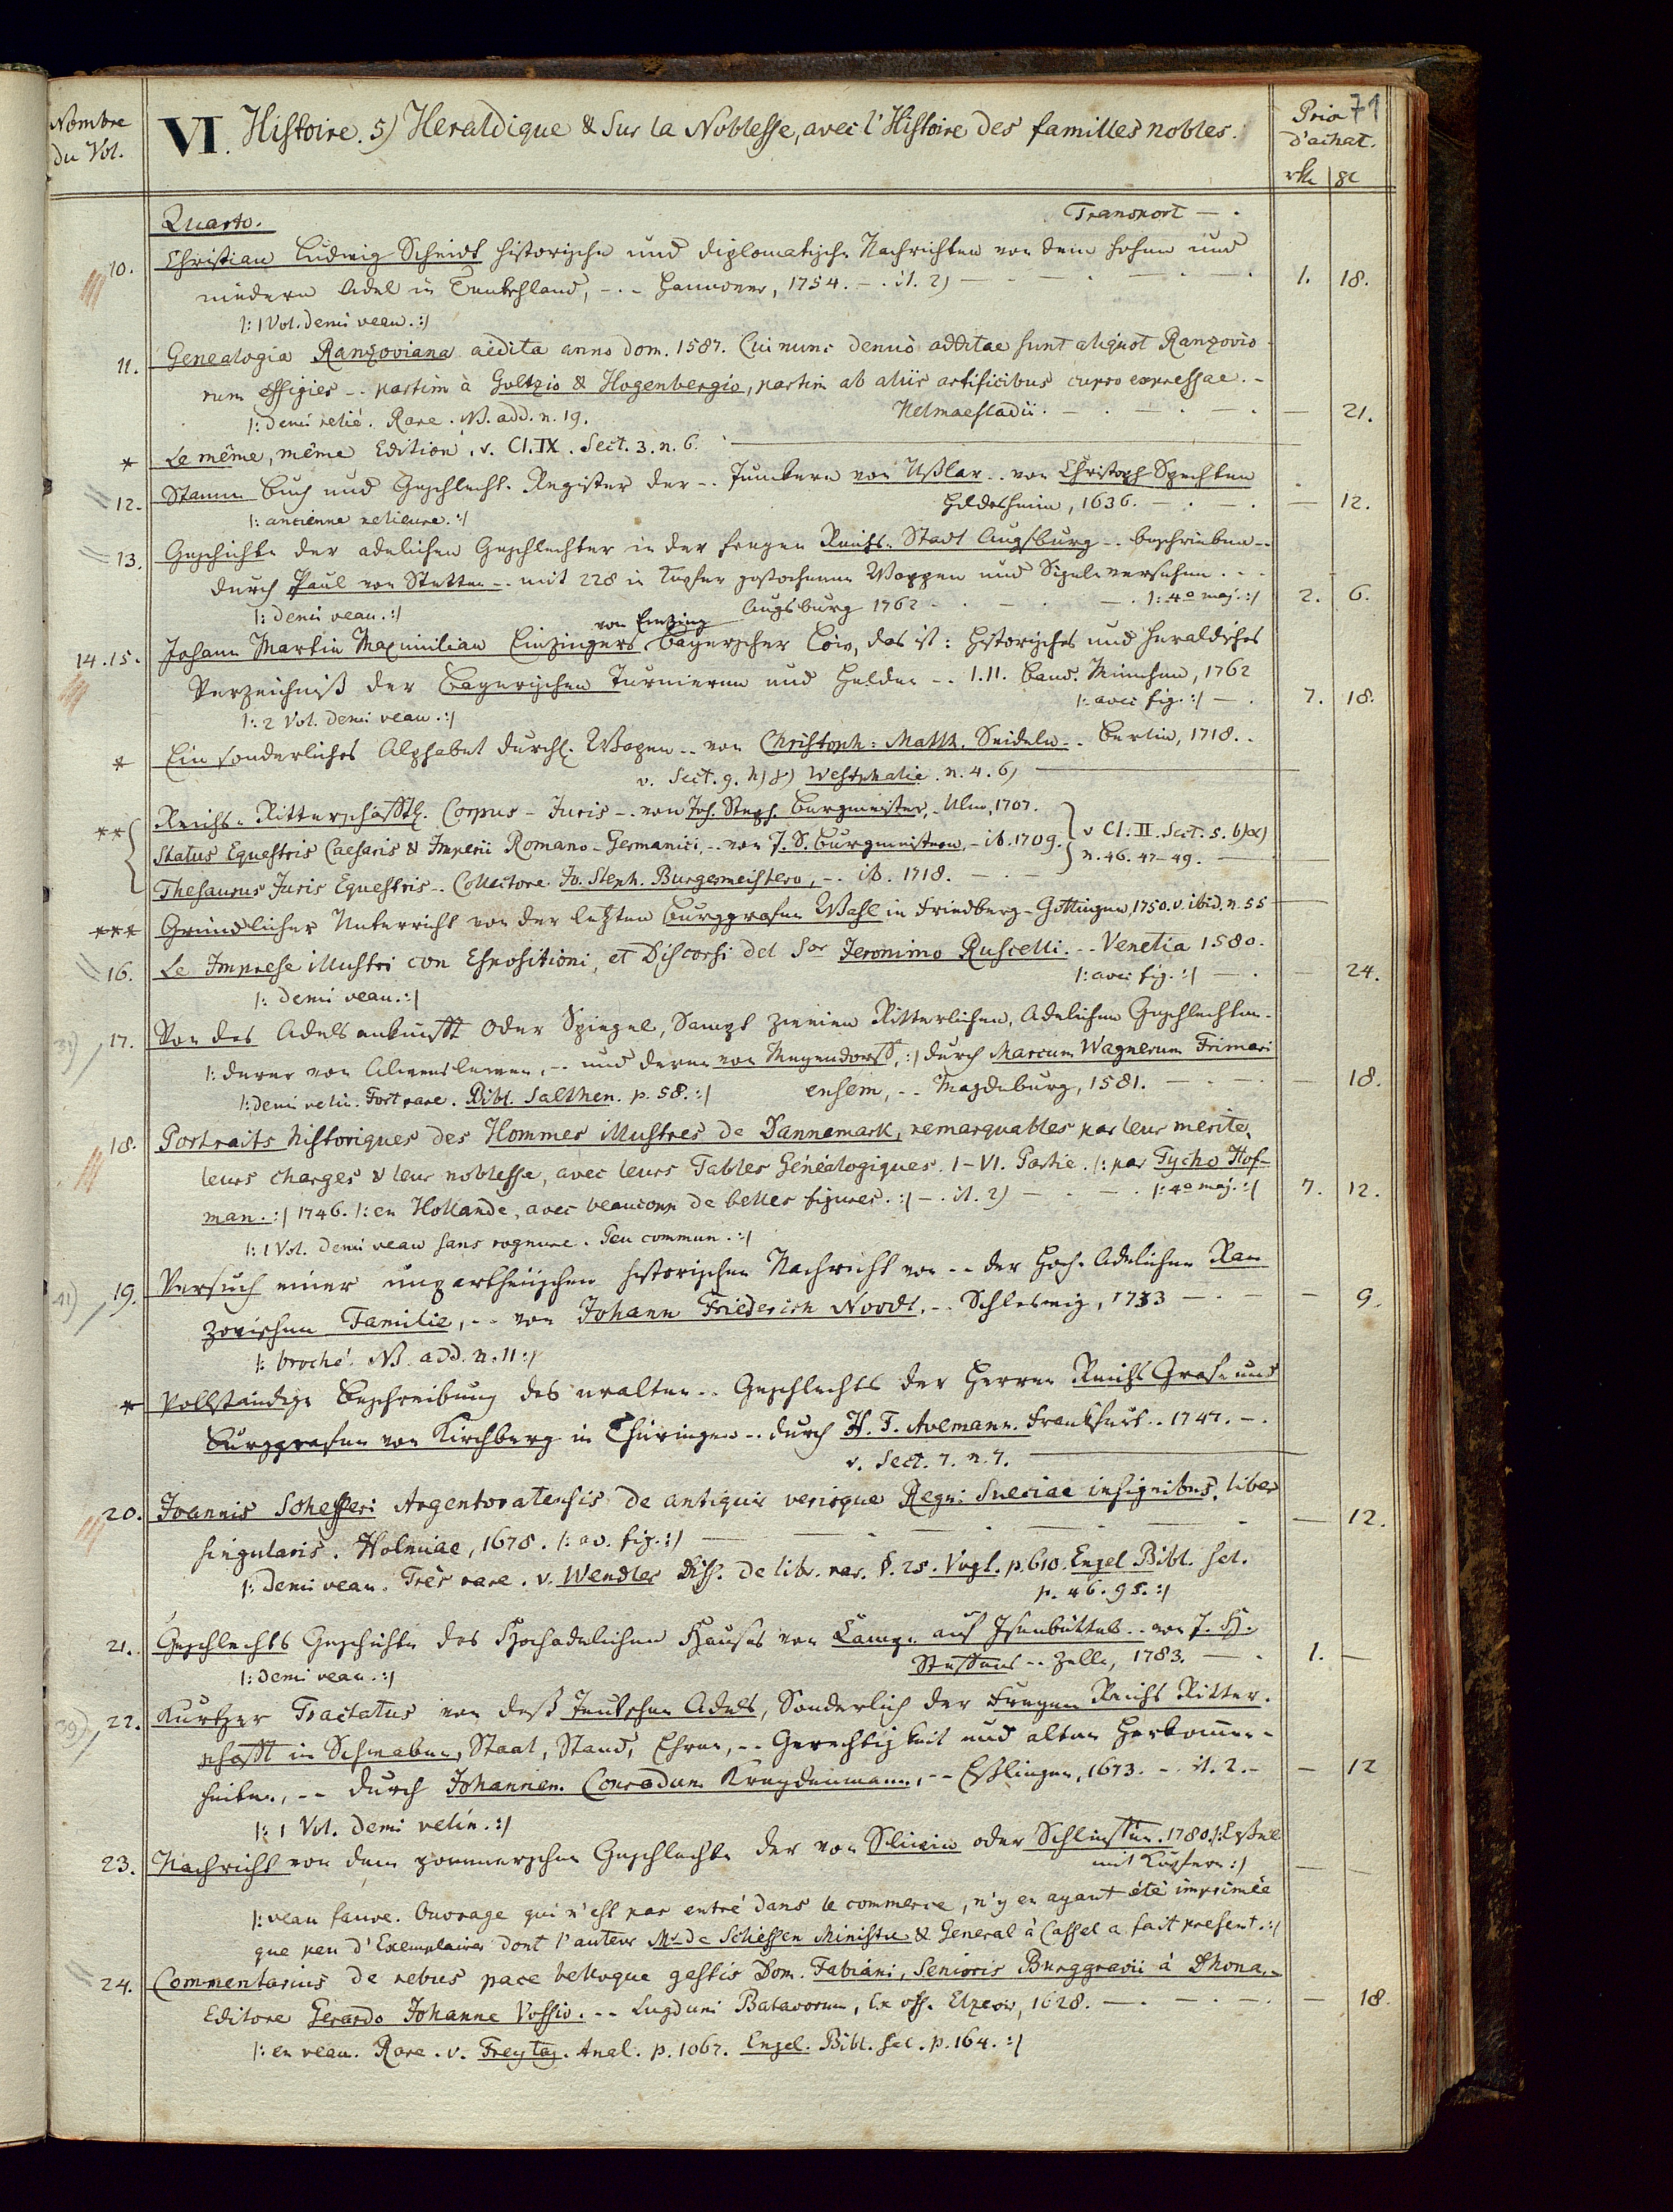 Nombre
du Vol.
VI. Histoire. 5) Heraldique & sur la Noblesse, avec l'Histoire des familles nobles.
Prix 71
d'achat.
rth | gl
Quarto. Transport — .
10. Christian Ludwig Scheidt historische und diplomatische Nachrichten von dem hohen und
niedern Adel in Teutschland, -.- Hannover, 1754. -. it. 2) — 1. 18.
/: 1 Vol. demi veau. :/
11. Genealogia Ranzoviana aedita anno dom. 1587. Cui nunc denuò additae sunt aliquot Ranzovio
rum effigies -. partim à Goltzio & Hogenbergio, partim ab aliis artificibus cupro expressae. -
/: demi relié. Rare. NB. add. n. 19. Helmaestadii. — 21.
* Le même, même Edition, v. Cl. IX. Sect. 3. n. 6.
12. Stamm Buch und Geschlecht-Register der -. Junckern von Ußlar -. von Christoph Spechten
/: ancienne relieure. :/ Hildesheim, 1636. — 12.
13. Geschichte der adelichen Geschlechter in der freyen Reichs-Stadt Augsburg -. beschrieben -.
durch Paul von Stetten -. mit 228 in Kupfer gestochenen Wappen und Sigeln versehen. - -
/: demi veau. :/ Augsburg 1762 — . /: 4º maj. :/ 2. 6.
von Einzing
14. 15. Johann Martin Maximilian Einzingers bayerscher Löw, das ist: Historisches und Heraldisches
Verzeichniß der Bayerischen Turnieren und Helden -. I. II. Band. München, 1762
/: 2 Vol. demi veau. :/ /: avec fig. :/ — . 7. 18.
* Ein sonderliches Alphabet durchl. Wapen -. von Christoph: Matth. Seideln -. Berlin, 1718. -
v. Sect. 9. h) 8) Westphalie. n. 4. 6)
** Reichs-Ritterschafftl. Corpus-Juris -. von Joh. Steph. Burgmeister, - Ulm, 1707.
Status Equestris Caesaris & Imperii Romano-Germanici, -. von J. S. Burgmeistern, - ib. 1709. } v Cl. II. Sect. 5. b) α)
n. 46. 47-49.
Thesaurus Juris Equestris -. Collectore Jo. Steph. Burgermeistero, -. ib. 1718. —
*** Gründlicher Unterricht von der letzten Burggrafen Wahl in Friedberg - Göttingen, 1750. v. ibid. n. 55
16. Le Imprese illustri con Espositioni, et Discorsi del Sor Jeronimo Ruscelli. -. Venetia 1580.
/: demi veau. :/ /: avec fig. :/ — 24.
31) 17. Von des Adels ankunfft Oder Spiegel, Sampt zweien Ritterlichen, Adelichen Geschlechten.
/: derer von Alvensleven, -. und derer von Meyendorff, :/ durch Marcum Wagnerum Frimari
/: demi relié. Fort rare. Bibl. Salthen. p. 58. :/ ensem, -. Magdeburg, 1581. — 18.
18. Portraits historiques des Hommes illustres de Dannemark, remarquables par leur merite,
leurs charges & leur noblesse, avec leurs Tables Généalogiques. I-VI. Partie. /: par Tycho Hof-
man. :/ 1746. /: en Hollande, avec beaucoup de belles figures. :/ -. it. 2) — . /: 4º maj. :/ 7. 12.
/: 1 Vol. demi veau sans rognure. Peu commun. :/
41) 19. Versuch einer unpartheiischen historischen Nachricht von -. der Hoch-Adelichen Ran
zovischen Familie, -. von Johann Friederich Noodt, -. Schleswig, 1733 — 9.
/: broché. NB. add. n. 11 :/
* Vollständige Beschreibung des uralten -. Geschlechts der Herren Reichs Graf- und
Burggrafen von Kirchberg in Thüringen -. durch H. F. Avemann. Frankfurt -. 1747. -.
v. Sect. 7. n. 7.
20. Joannis Schefferi Argentoratensis de antiquis verisque Regni Sueciae insignibus, liber
singularis. Holmiae, 1678. /: av. fig. :/ — 12.
/: demi veau. Très rare. v. Wendler Diss. de libr. rar. §. 25. Vogt. p. 610. Engel Bibl. sel.
p. 46. 95. :/
21. Geschlechts Geschichte des Hochadelichen Hauses von Campe auf Isenbüttel -. von J. H.
/: demi veau. :/ Steffens -. Zelle, 1783. — 1. —
39) 22. Kurtzer Tractatus von deß Teutschen Adels, Sonderlich der Freyen Reichs Ritter-
schafft in Schwaben, Staat, Stand, Ehren, -. Gerechtigkeit und alten Herkommen-
heiten, -. durch Johannem Conradum Kreydenmann, -. Eßlingen, 1673. -. it. 2. - — 12
/: 1 Vol. demi velin. :/
23. Nachricht von dem pommerschen Geschlechte der von Sliwin oder Schlieffen. 1780. /: Cassel
mit Kupfern :/ — —
/: veau fauve. Ouvrage qui n'est pas entré dans le commerce, n'y en ayant été imprimée
que peu d'Exemplaires dont l'auteur Mr. de Schlieffen Ministre & General à Cassel a fait present. :/
24. Commentarius de rebus pace belloque gestis Dom. Fabiani, Senioris Burggravii à Dhona, -
Editore Gerardo Johanne Vossio. -. Lugduni Batavorum, Ex off. Elzevir, 1628. — 18.
/: en veau. Rare. v. Freytag. Anal. p. 1067. Engel. Bibl. sel. p. 164. :/